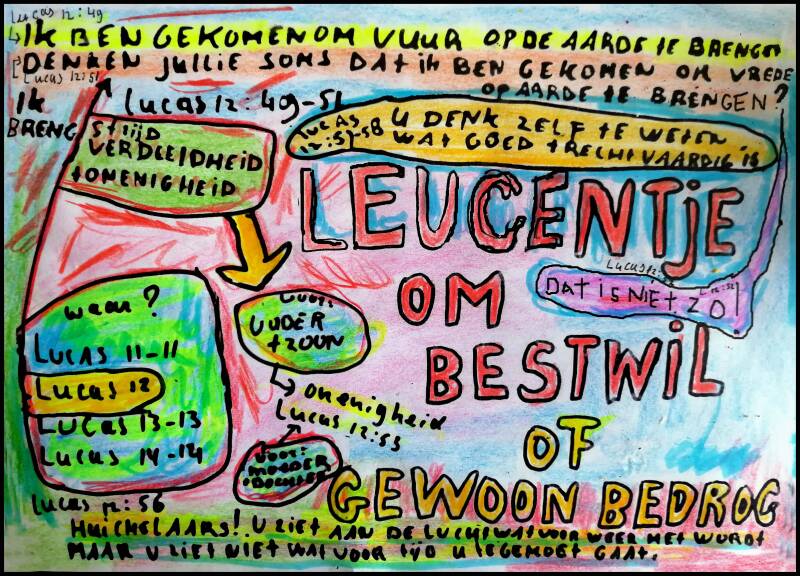 Lucas 12:49
IK BEN GEKOMEN OM VUUR OP DE AARDE TE BRENGEN
DENKEN JULLIE SOMS DAT IK BEN GEKOMEN OM VREDE
Lucas 12:51
OP AARDE TE BRENGEN?
IK
BRENG
Lucas 12:49-51
STRIJD
VERDEELDHEID
+OMENIGHEID
LUCAS
12:57-58
U DENK ZELF TE WETEN
WAT GOED + RECHTVAARDIG IS
LEUGENTJE
OM
BESTWIL
OF
GEWOON BEDROG
DAT IS NIET ZO!
waar?
LUCAS 11-11
LUCAS 12
LUCAS 13-13
LUCAS 14-14
VOOR:
VADER
+ZOON
onenigheid
Lucas 12:53
VOOR:
MOEDER
+DOCHTER
Lucas 12:56
HUICHELAARS! U ZIET AAN DE LUCHT WAT VOOR WEER HET WORDT
MAAR U ZIET NIET WAT VOOR TIJD U TEGEMOET GAAT.